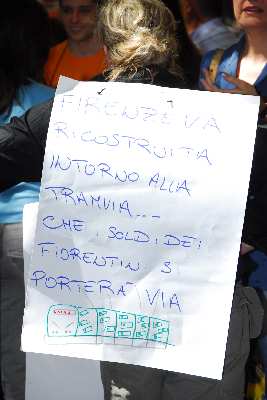 FIRENZE VA
RICOSTRUITA
INTORNO ALLA
TRAMVIA....
CHE I SOLDI DEI
FIORENTINI SI
PORTERÀ VIA